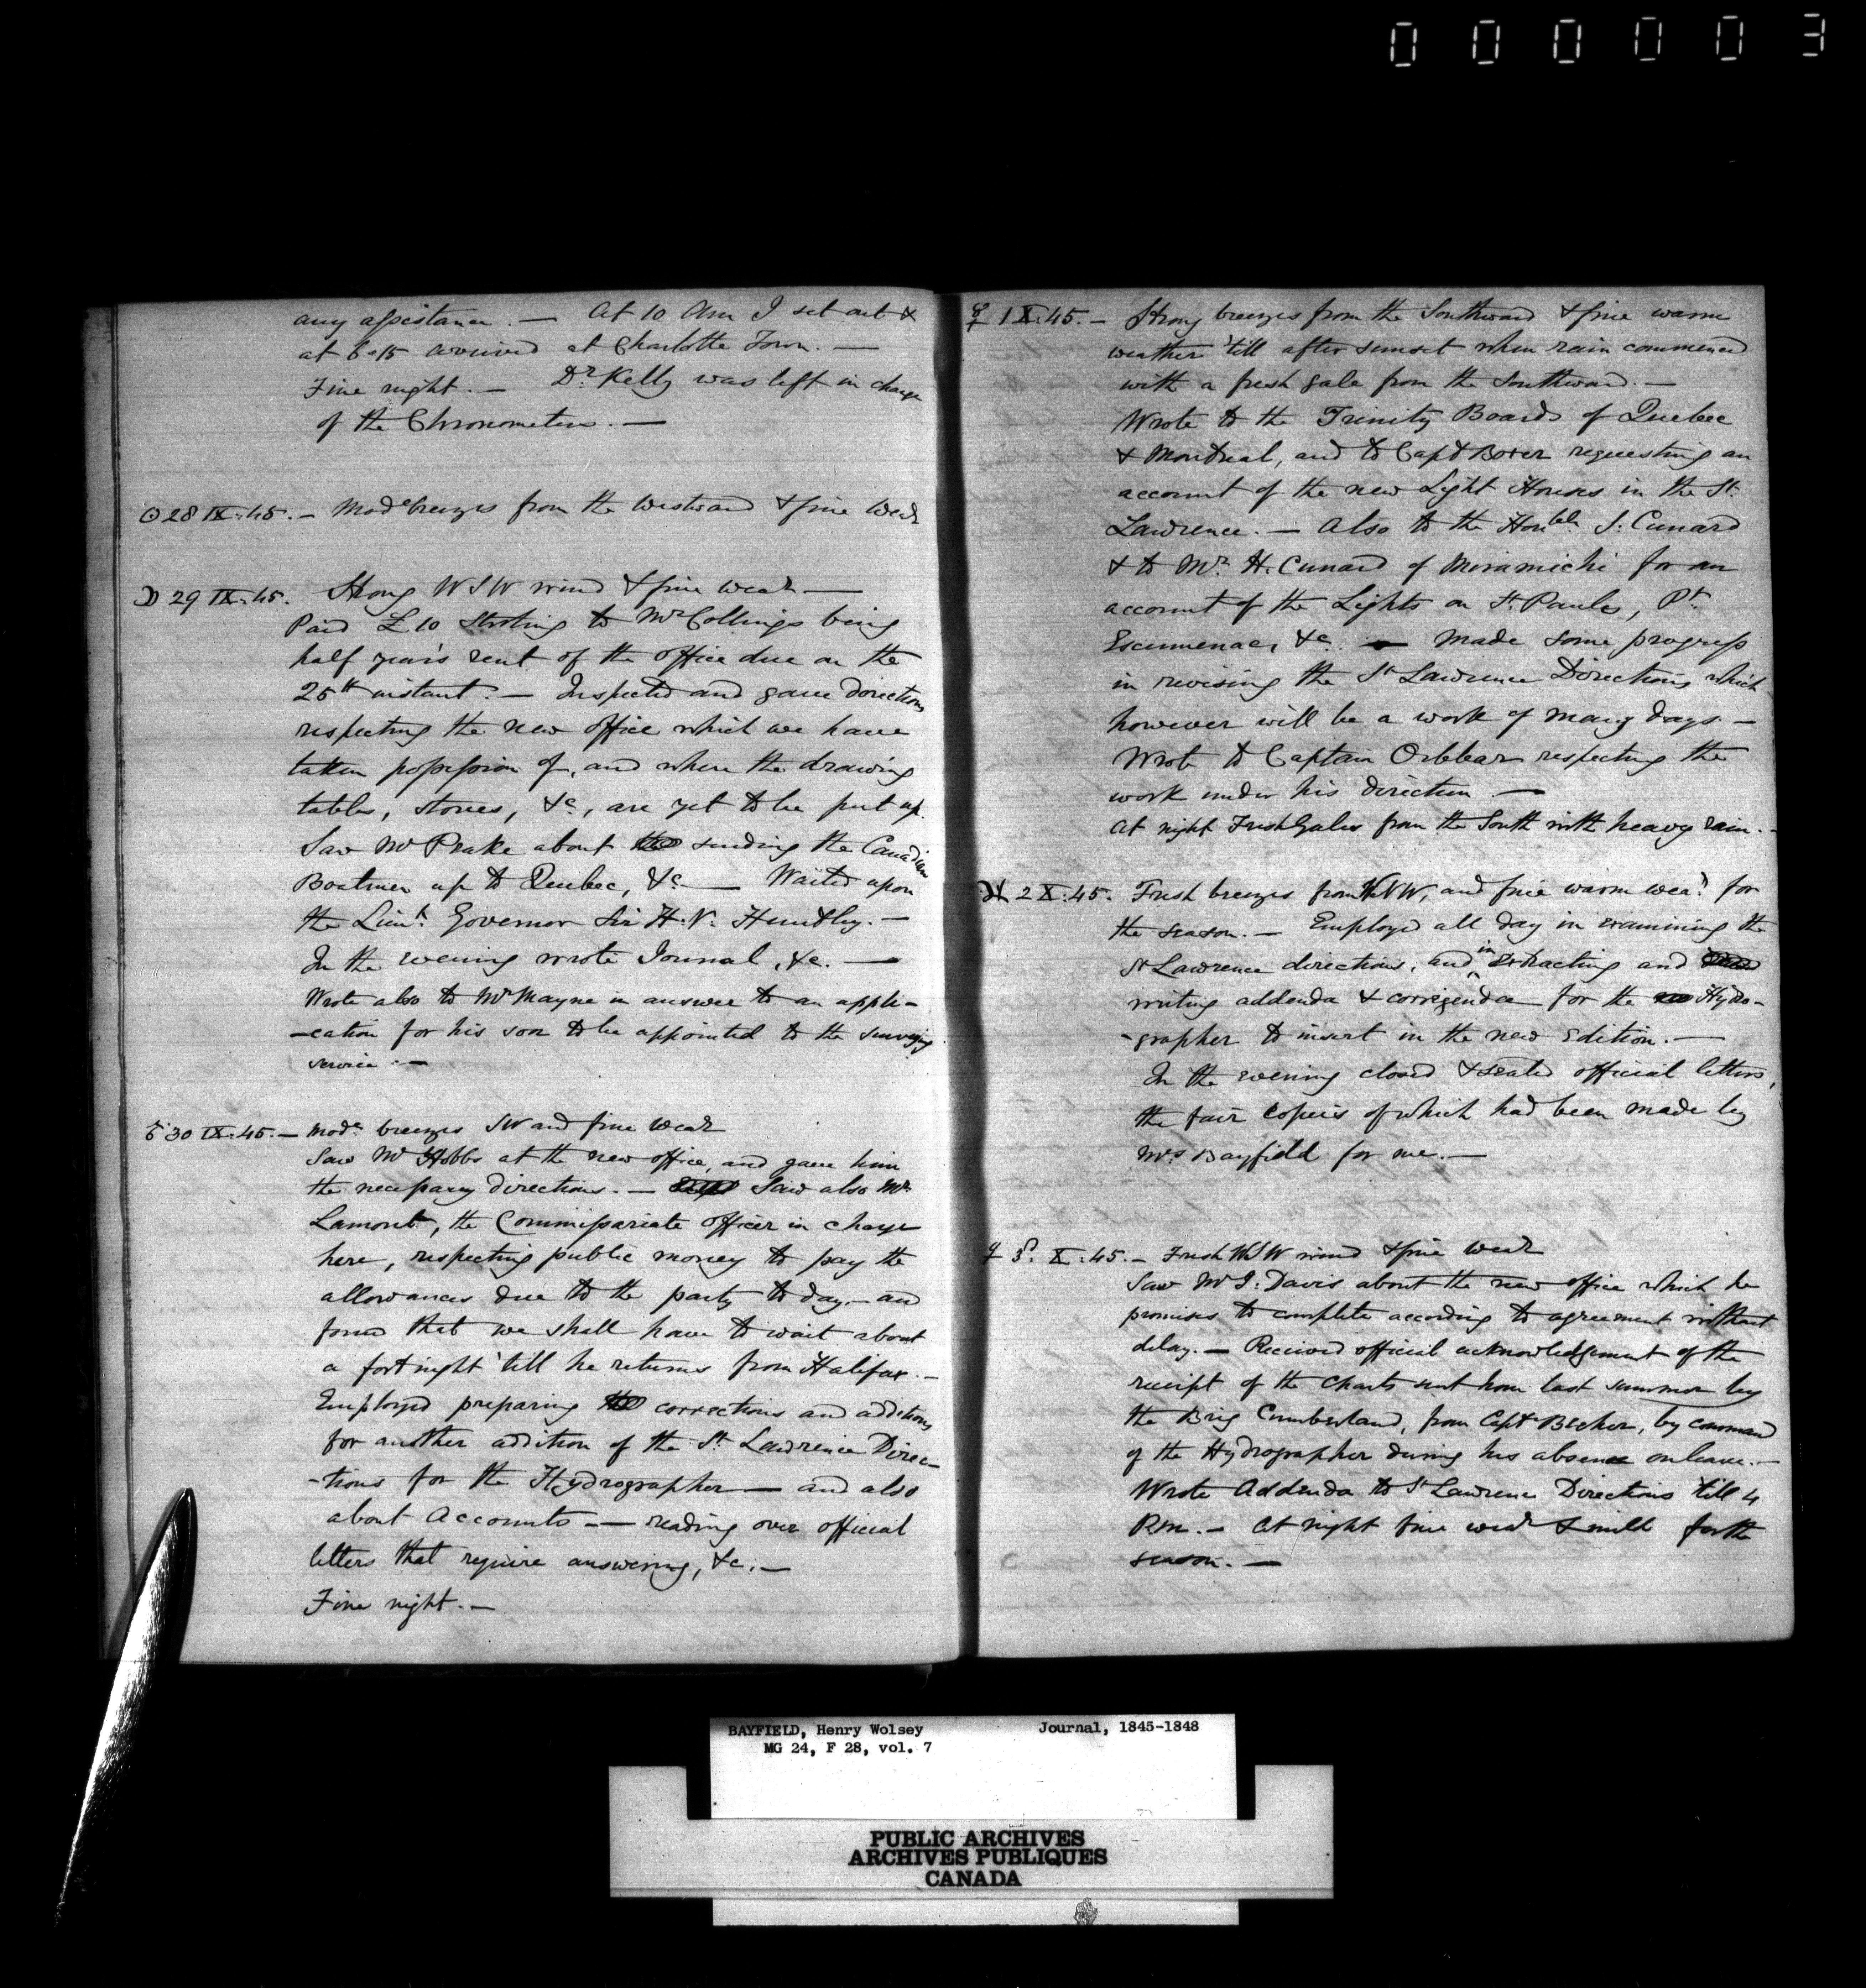 000003
any assistance. — At 10 Am I set out &
at 6.15 arrived at Charlotte Town. —
Fine night. — Dr Kelly was left in charge
of the Chronometers. —
☉ 28 IX. 45. — Mode breezes from the Westward & fine Wear
☽ 29 IX. 45. Strong WSW wind & fine wear —
Paid £10 Sterling to Mr Collings being
half year's rent of the office due on the
25th instant. — Inspected and gave directions
respecting the new office which we have
taken possession of, and where the drawing
tables, stoves, &c., are yet to be put up.
Saw Mr Peake about sending the Canadian
Boatmen up to Quebec, &c — Waited upon
the Lieut. Governor Sir H. V. Huntley. —
In the evening wrote Journal, &c. —
Wrote also to Mr Mayne in answer to an appli-
-cation for his son to be appointed to the surveying
service. —
30 IX. 45. — Mode breezes SW and fine wear
Saw Mr Hobbs at the new office, and gave him
the necessary directions. — Saw also Mr
Lamont, the Commissariate officer in charge
here, respecting public money to pay the
allowances due to the party to day — and
found that we shall have to wait about
a fortnight 'till he returns from Halifax. —
Employed preparing corrections and additions
for another addition of the St Lawrence Direc-
-tions for the Hydrographer — and also
about Accounts — reading over official
letters that require answering, &c. —
Fine night. —
☿ 1 X. 45. — Strong breezes from the Southward & fine warm
weather 'till after sunset when rain commenced
with a fresh gale from the Southward. —
Wrote to the Trinity Boards of Quebec
& Montreal, and to Capt Boxer requesting an
account of the new Light Houses in the St.
Lawrence. — Also to the Honble S. Cunard
& to Mr H. Cunard of Miramichi for an
account of the Lights on St Pauls, Pt
Escumenac, &c. — Made some progress
in revising the St Lawrence Directions which
however will be a work of many days. —
Wrote to Captain Orlebar respecting the
work under his direction. —
At night Fresh Gales from the South with heavy rain. —
♃ 2 X. 45. Fresh breezes from WNW, and fine warm wear for
the season. — Employed all day in examining the
St Lawrence directions, and in extracting and
writing addenda & corrigenda for the Hydro-
-grapher to insert in the new Edition. —
In the evening closed & sealed official letters,
the fair copies of which had been made by
Mrs Bayfield for me. —
♀ 3 X. 45. — Fresh WSW wind & fine wear
Saw Mr I. Davis about the new office which he
promises to complete according to agreement without
delay. — Received official acknowledgement of the
receipt of the Charts sent home last summer by
the Brig Cumberland, from Capt Becher, by command
of the Hydrographer during his absence on leave. —
Wrote Addenda to St Lawrence Directions 'till 4
P.m. — At night fine wear & mild for the
season. —
BAYFIELD, Henry Wolsey Journal, 1845-1848
MG 24, F 28, vol. 7
PUBLIC ARCHIVES
ARCHIVES PUBLIQUES
CANADA